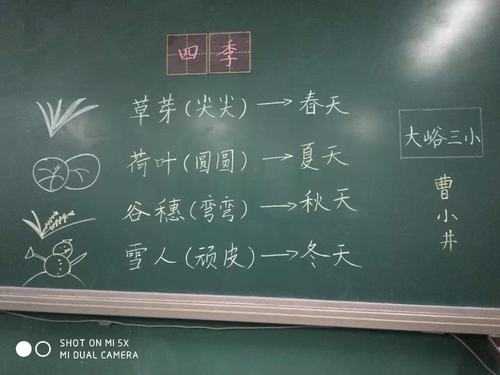 四季
草芽(尖尖)→春天
荷叶(圆圆)→夏天
谷穗(弯弯)→秋天
雪人(顽皮)→冬天
大峪三小
曹小井
SHOT ON MI 5X
MI DUAL CAMERA